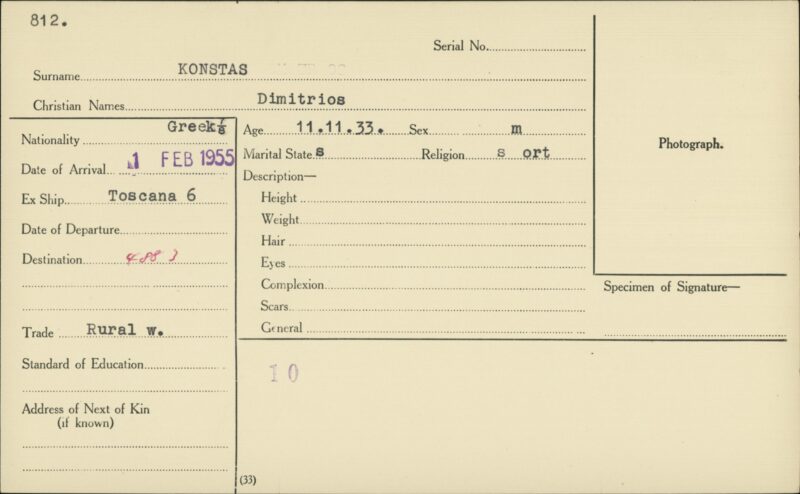 812.
Serial No.
Surname KONSTAS
Christian Names Dimitrios
Nationality Greek
Date of Arrival 1 FEB 1955
Ex Ship Toscana 6
Date of Departure
Destination
Trade Rural w.
Standard of Education
Address of Next of Kin
(if known)
Age 11.11.33. Sex m
Marital State s Religion s ort
Description—
Height
Weight
Hair
Eyes
Complexion
Scars
General
10
(33)
Photograph.
Specimen of Signature—